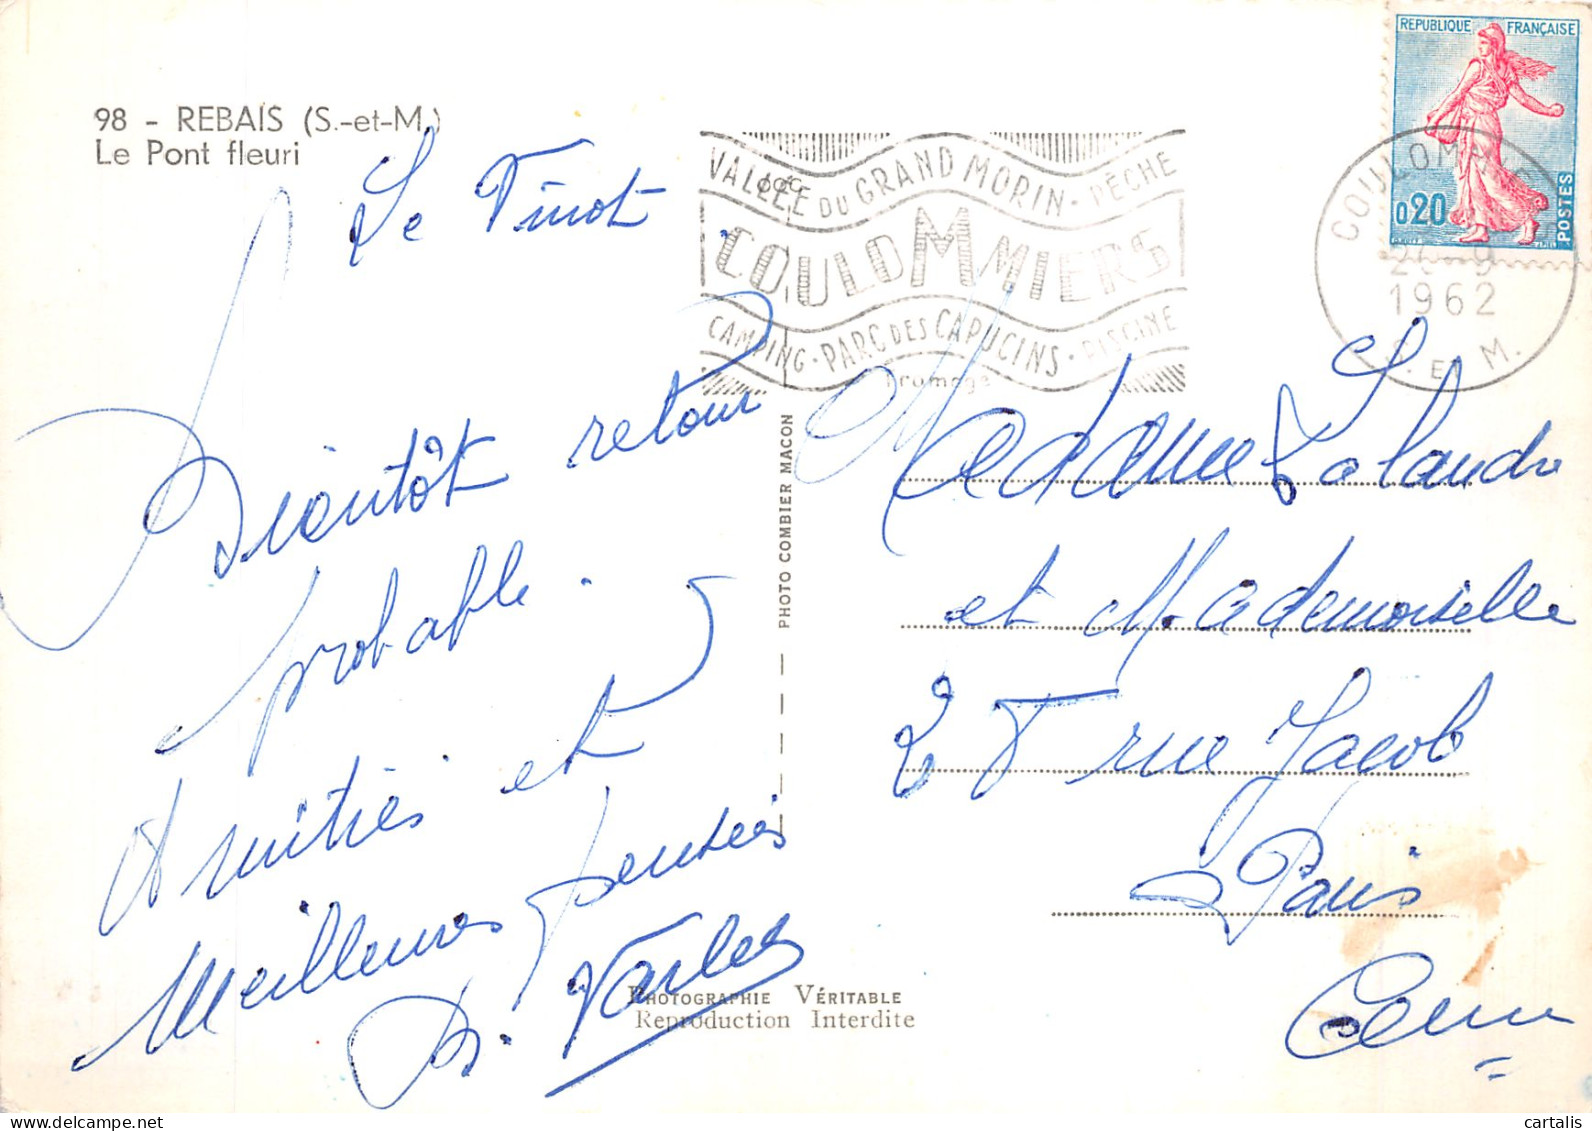 98 - REBAIS (S.-et-M.)
Le Pont fleuri
Le Pinot
Bientôt retour
probable.
Amitiés et
Meilleures pensées
VALLÉE DU GRAND MORIN - PÊCHE
COULOMMIERS
CAMPING - PARC DES CAPUCINS - PISCINE
Fromage
REPUBLIQUE FRANÇAISE
0,20
POSTES
1962
S. ET M.
PHOTO COMBIER MACON
Madame Lalande
et Mademoiselle
25 rue Jacob
Paris
PHOTOGRAPHIE VÉRITABLE
Reproduction Interdite
cartalis